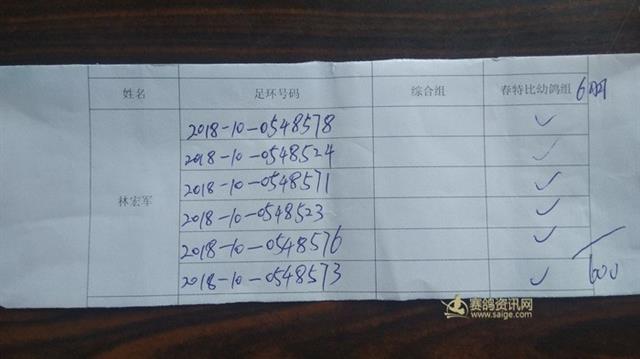 姓名 足环号码 综合组 春特比幼鸽组 6羽
2018-10-0548578 ✓
2018-10-0548524 ✓
2018-10-0548571 ✓
林宏军 2018-10-0548523 ✓
2018-10-0548576 ✓
2018-10-0548573 ✓ 600
赛鸽资讯网
www.saige.com